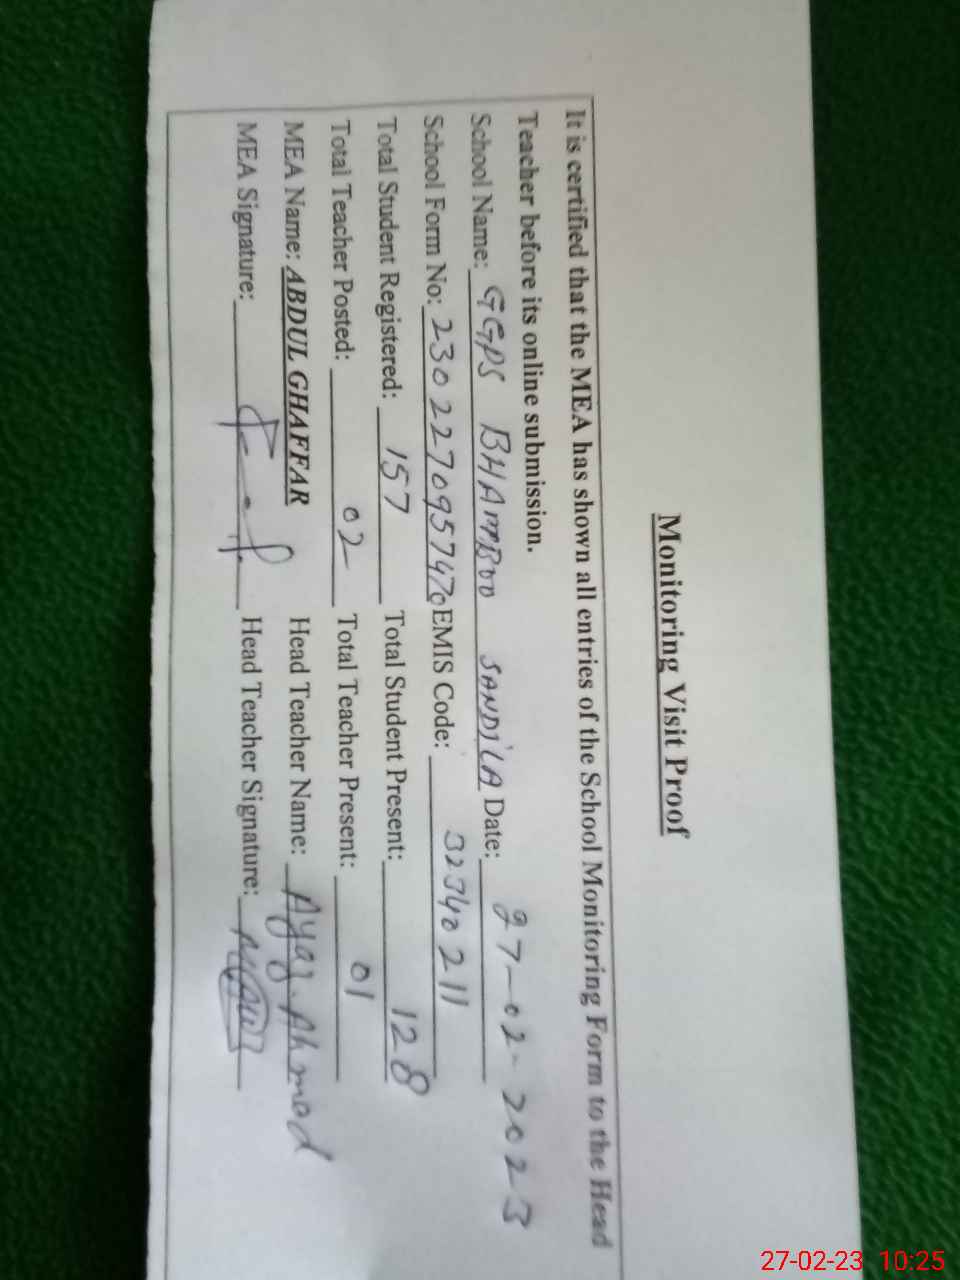 Monitoring Visit Proof
It is certified that the MEA has shown all entries of the School Monitoring Form to the Head
Teacher before its online submission.
School Name: GGPS BHAMBOO SANDILA Date: 27-02-2023
School Form No: 230227095747​0 EMIS Code: 32340211
Total Student Registered: 157 Total Student Present: 128
Total Teacher Posted: 02 Total Teacher Present: 01
MEA Name: ABDUL GHAFFAR Head Teacher Name: Ayaz. Ahmad
MEA Signature: Head Teacher Signature:
27-02-23 10:25